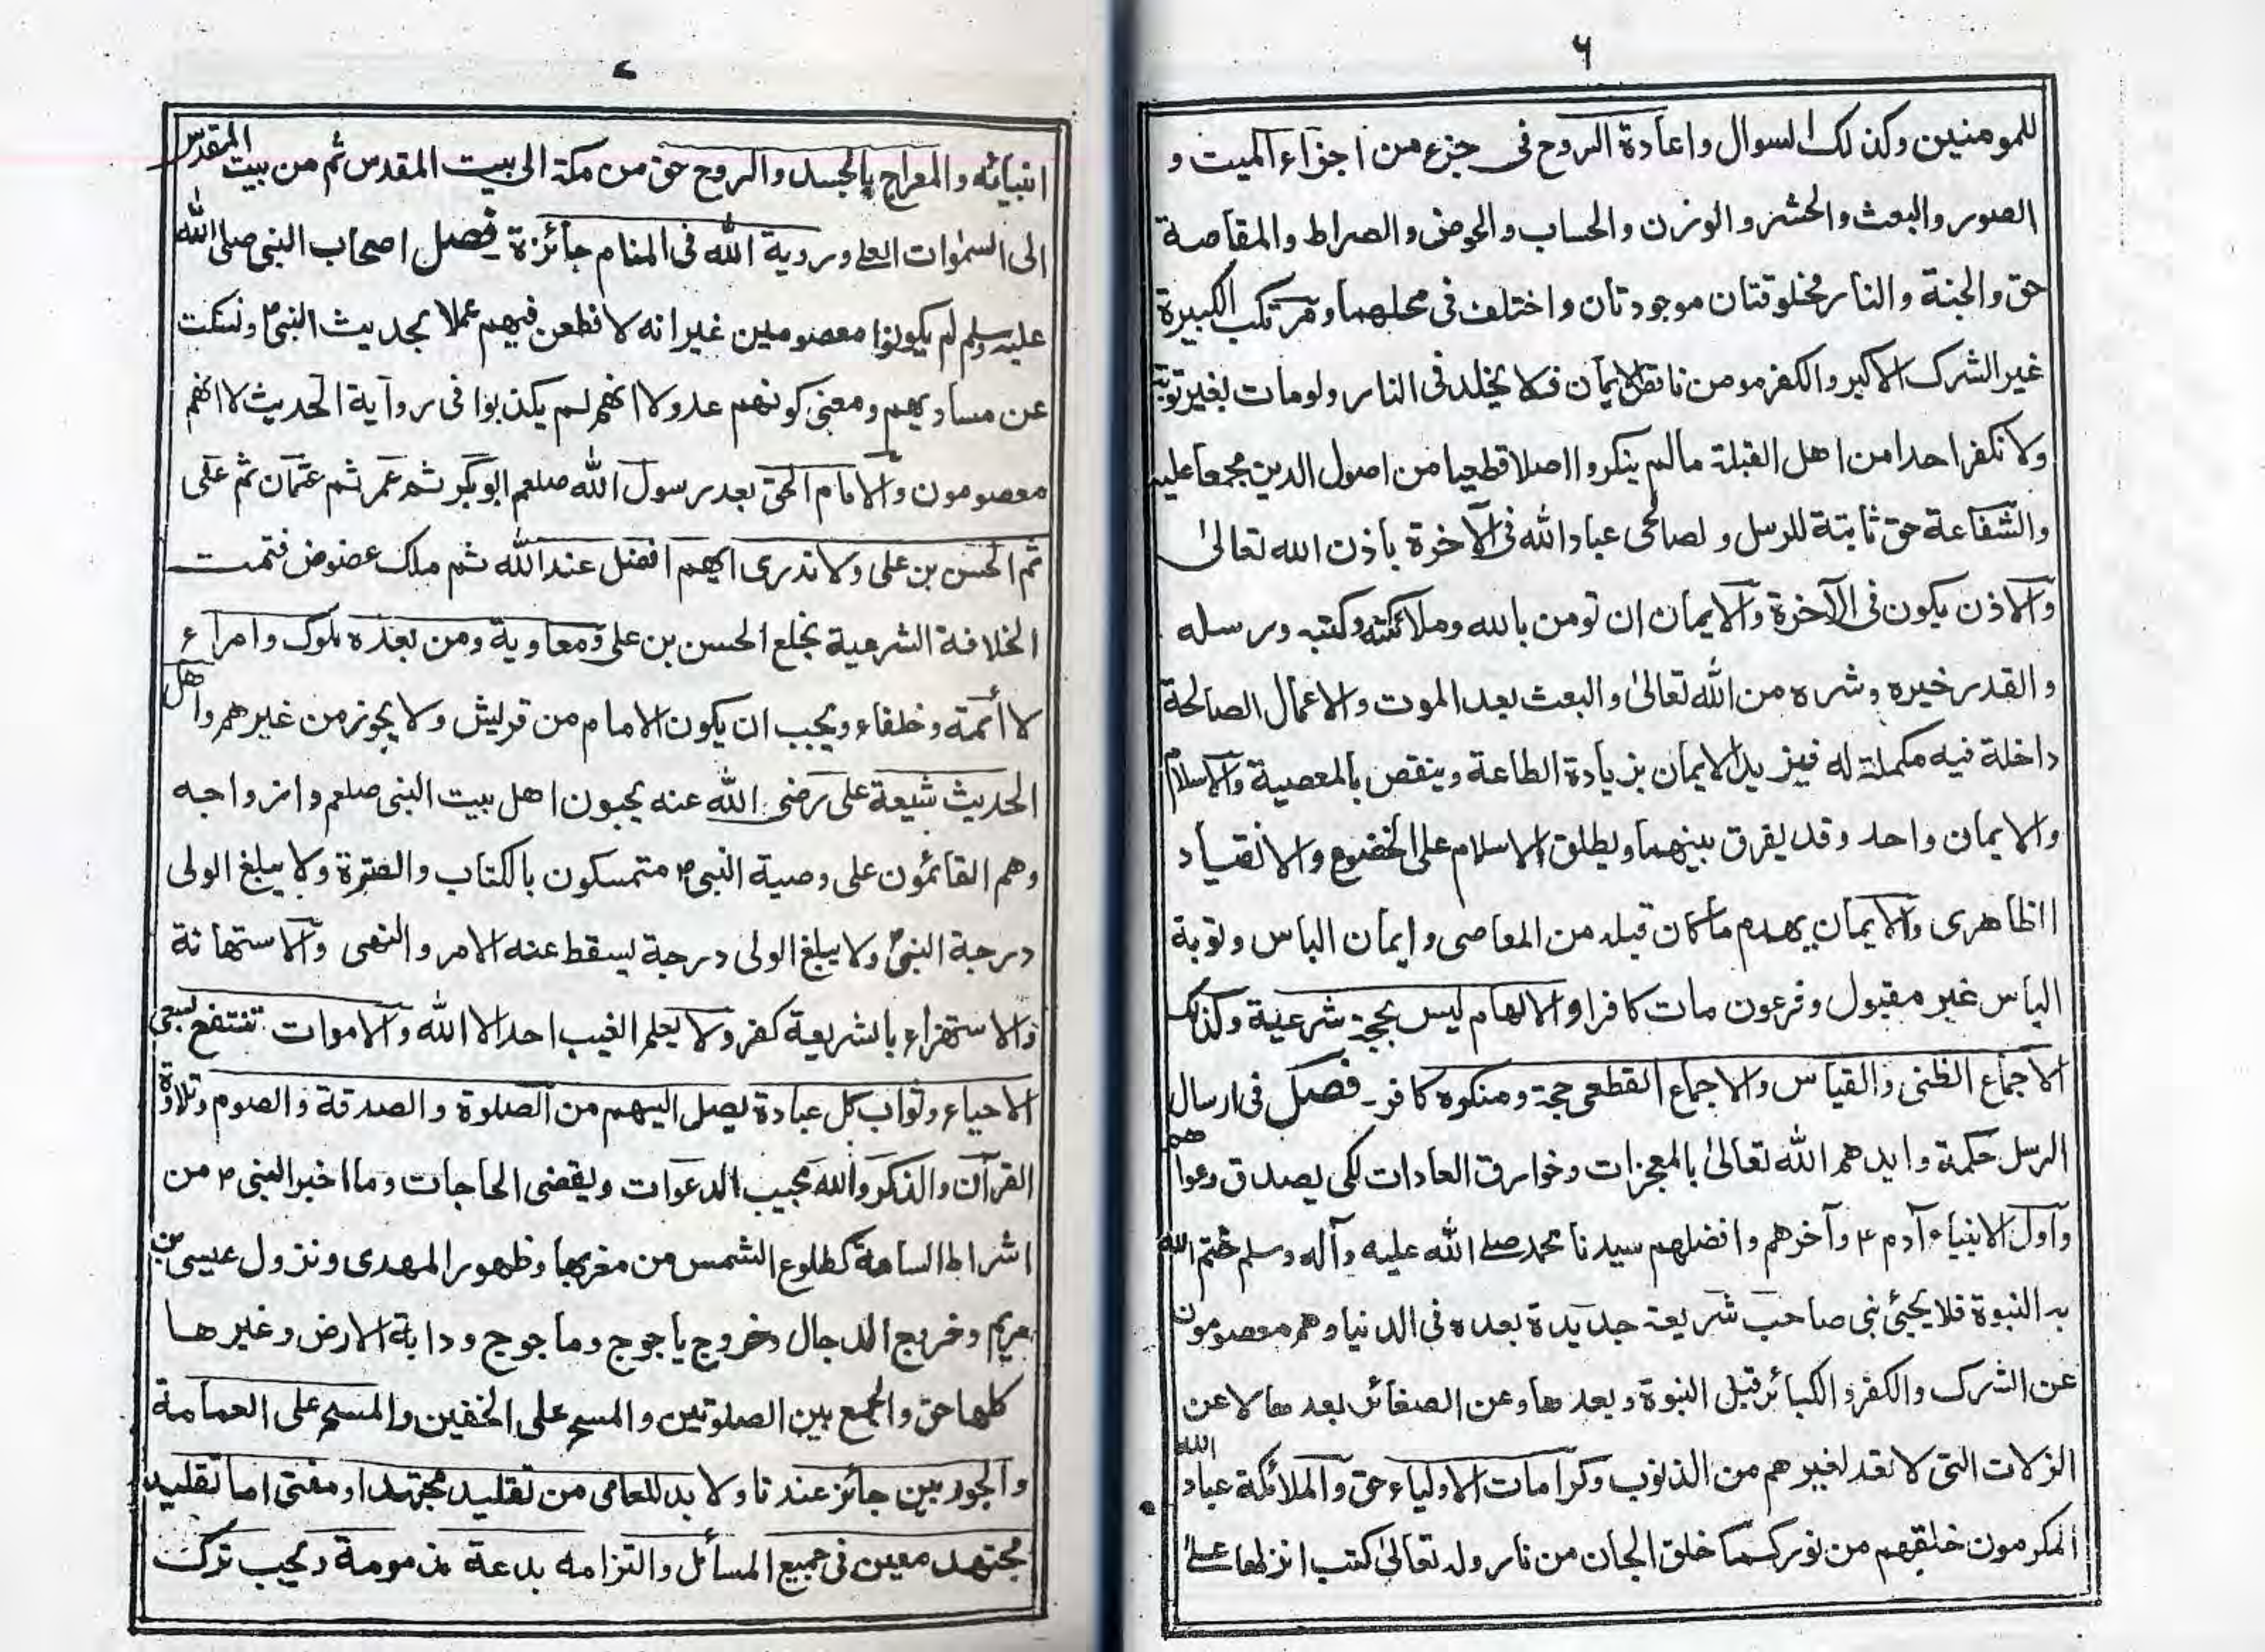 ٦
للمومنين وكذلك السوال واعادة الروح فى جزء من اجزاء الميت و
الصور والبعث والحشر والوزن والحساب والحوض والصراط والمقاصة
حق والجنة والنار مخلوقتان موجودتان واختلف فى محلهما ومرتكب الكبيرة
غير الشرك الاكبر والكفر مومن ناقص الايمان فلا يخلد فى النار ولومات بغير توبة
ولا نكفر احدا من اهل القبلة مالم ينكروا اصلا قطعيا من اصول الدين مجمعا عليه
والشفاعة حق ثابتة للرسل ولصالحى عباد الله فى الآخرة باذن الله تعالىٰ
والاذن يكون فى الآخرة والايمان ان تومن بالله وملائكته وكتبه ورسله
والقدر خيره وشره من الله تعالىٰ والبعث بعد الموت والاعمال الصالحة
داخلة فيه مكملة له فيزيد الايمان بزيادة الطاعة وينقص بالمعصية والاسلام
والايمان واحد وقد يفرق بينهما ويطلق الاسلام على الخضوع والانقياد
الظاهرى والايمان يهدم ماكان قبله من المعاصى وايمان الباس وتوبة
الباس غير مقبول وفرعون مات كافرا والالهام ليس بحجة شرعية وكذلك
الاجماع الظنى والقياس والاجماع القطعى حجة ومنكره كافر۔ فصل فى ارسال
الرسل حكمة وايدهم الله تعالىٰ بالمعجزات وخوارق العادات لكى يصدق دعواهم
واول الانبياء آدم ؑ وآخرهم وافضلهم سيدنا محمد صلے الله عليه وآله وسلم ختم الله
به النبوة فلا يجئ نبى صاحب شريعة جديدة بعده فى الدنيا وهم معصومون
عن الشرك والكفر والكبائر قبل النبوة وبعدها وعن الصغائر بعدها لا عن
الزلات التى لا تعد لغيرهم من الذنوب وكرامات الاولياء حق والملائكة عباد الله
المكرمون خلقهم من نور كما خلق الجان من نار وله تعالىٰ كتب انزلها علے
٧
انبيائه والمعراج بالجسد والروح حق من مكة الى بيت المقدس ثم من بيت المقدس
الى السمٰوات العلے وروية الله فى المنام جائزة۔ فصل اصحاب النبى صلى الله
عليه وسلم لم يكونوا معصومين غير انه لا نطعن فيهم عملا بحديث النبى ؐ ونسكت
عن مساويهم ومعنى كونهم عدولا انهم لم يكذبوا فى رواية الحديث لا انهم
معصومون والامام الحق بعد رسول الله صلعم ابوبكر ثم عمر ثم عثمان ثم على
ثم الحسن بن على ولا ندرى ايهم افضل عند الله ثم ملك عضوض فتمت
الخلافة الشرعية بخلع الحسن بن على ومعاوية ومن بعده ملوك وامراء
لا أئمة وخلفاء ويجب ان يكون الامام من قريش ولا يجوز من غيرهم واهل
الحديث شيعة على رضى الله عنه يحبون اهل بيت النبى صلعم وازواجه
وهم القائمون على وصية النبى ؐ متمسكون بالكتاب والعترة ولا يبلغ الولى
درجة النبى ؐ ولا يبلغ الولى درجة يسقط عنه الامر والنهى والاستهانة
والاستهزاء بالشريعة كفر ولا يعلم الغيب احد الا الله والاموات تنتفع بسعى
الاحياء وثواب كل عبادة يصل اليهم من الصلوة والصدقة والصوم وتلاوة
القرآن والذكر والله مجيب الدعوات ويقضى الحاجات وما اخبر النبى ؐ من
اشراط الساعة كطلوع الشمس من مغربها وظهور المهدى ونزول عيسى بن
مريم وخروج الدجال وخروج ياجوج وماجوج ودابة الارض وغيرها
كلها حق والجمع بين الصلوتين والمسح على الخفين والمسح على العمامة
والجوربين جائز عندنا ولا بد للعامى من تقليد مجتهد او مفتى اما تقليد
مجتهد معين فى جميع المسائل والتزامه بدعة مذمومة ويجب ترك